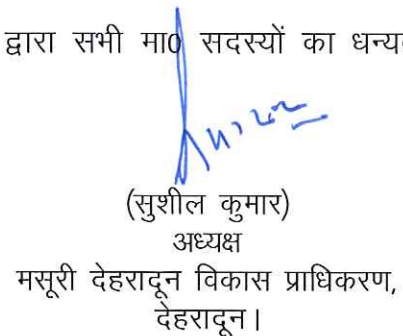 द्वारा सभी मा0 सदस्यों का
(सुशील कुमार)
अध्यक्ष
मसूरी देहरादून विकास प्राधिकरण,
देहरादून।